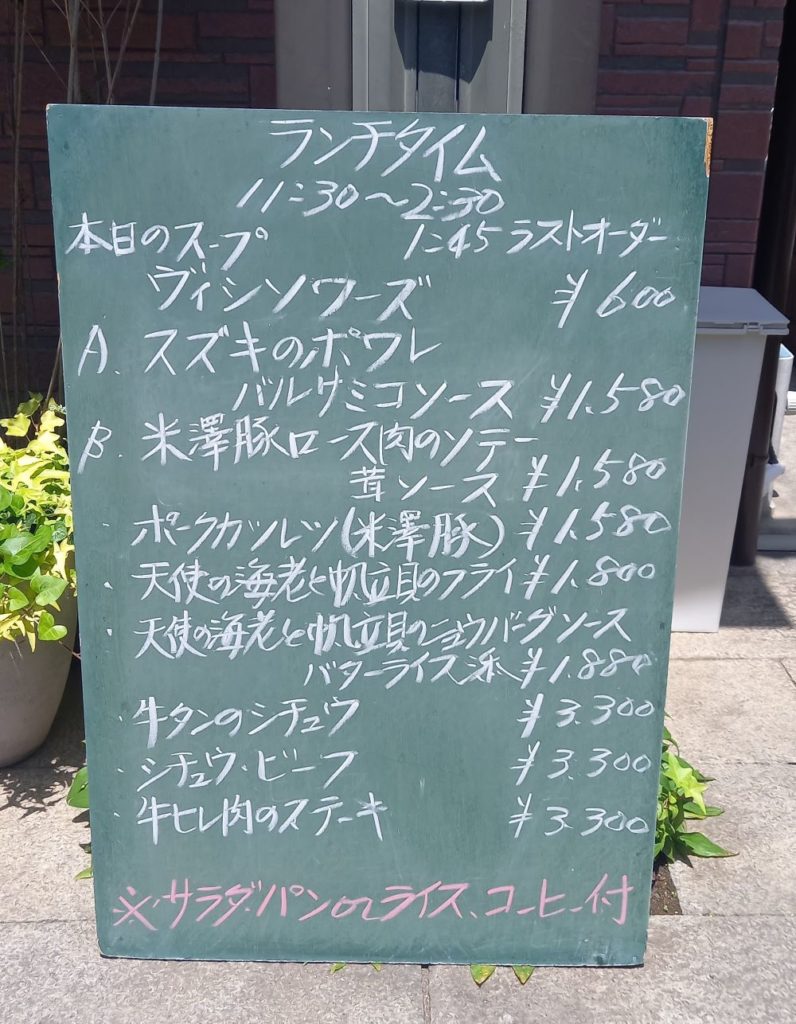 ランチタイム
11:30〜2:30
本日のスープ 1:45 ラストオーダー
ヴィシソワーズ ¥600
A. スズキのポワレ
バルサミコソース ¥1.580
B. 米澤豚ロース肉のソテー
茸ソース ¥1.580
・ポークカツレツ(米澤豚) ¥1.580
・天使の海老と帆立貝のフライ ¥1.800
・天使の海老と帆立貝のニュウバーグソース
バターライス添 ¥1.880
・牛タンのシチュウ ¥3.300
・シチュウ・ビーフ ¥3.300
・牛ヒレ肉のステーキ ¥3.300
※サラダ、パンorライス、コーヒー付